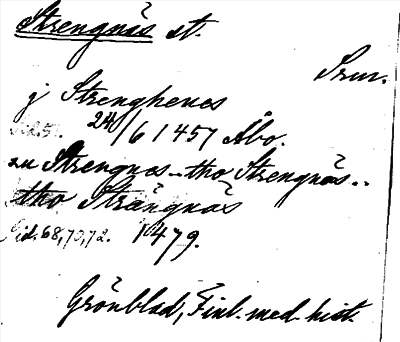 Strengnäs st.
Srm.
j Strenghenes
Sid. 5. 24/6 1457 Åbo.
au Strengnes.. tho Strengnäs..
tho Strängnäs
Sid. 68, 70, 72. 1479.
Grönblad, Finl. med. hist.